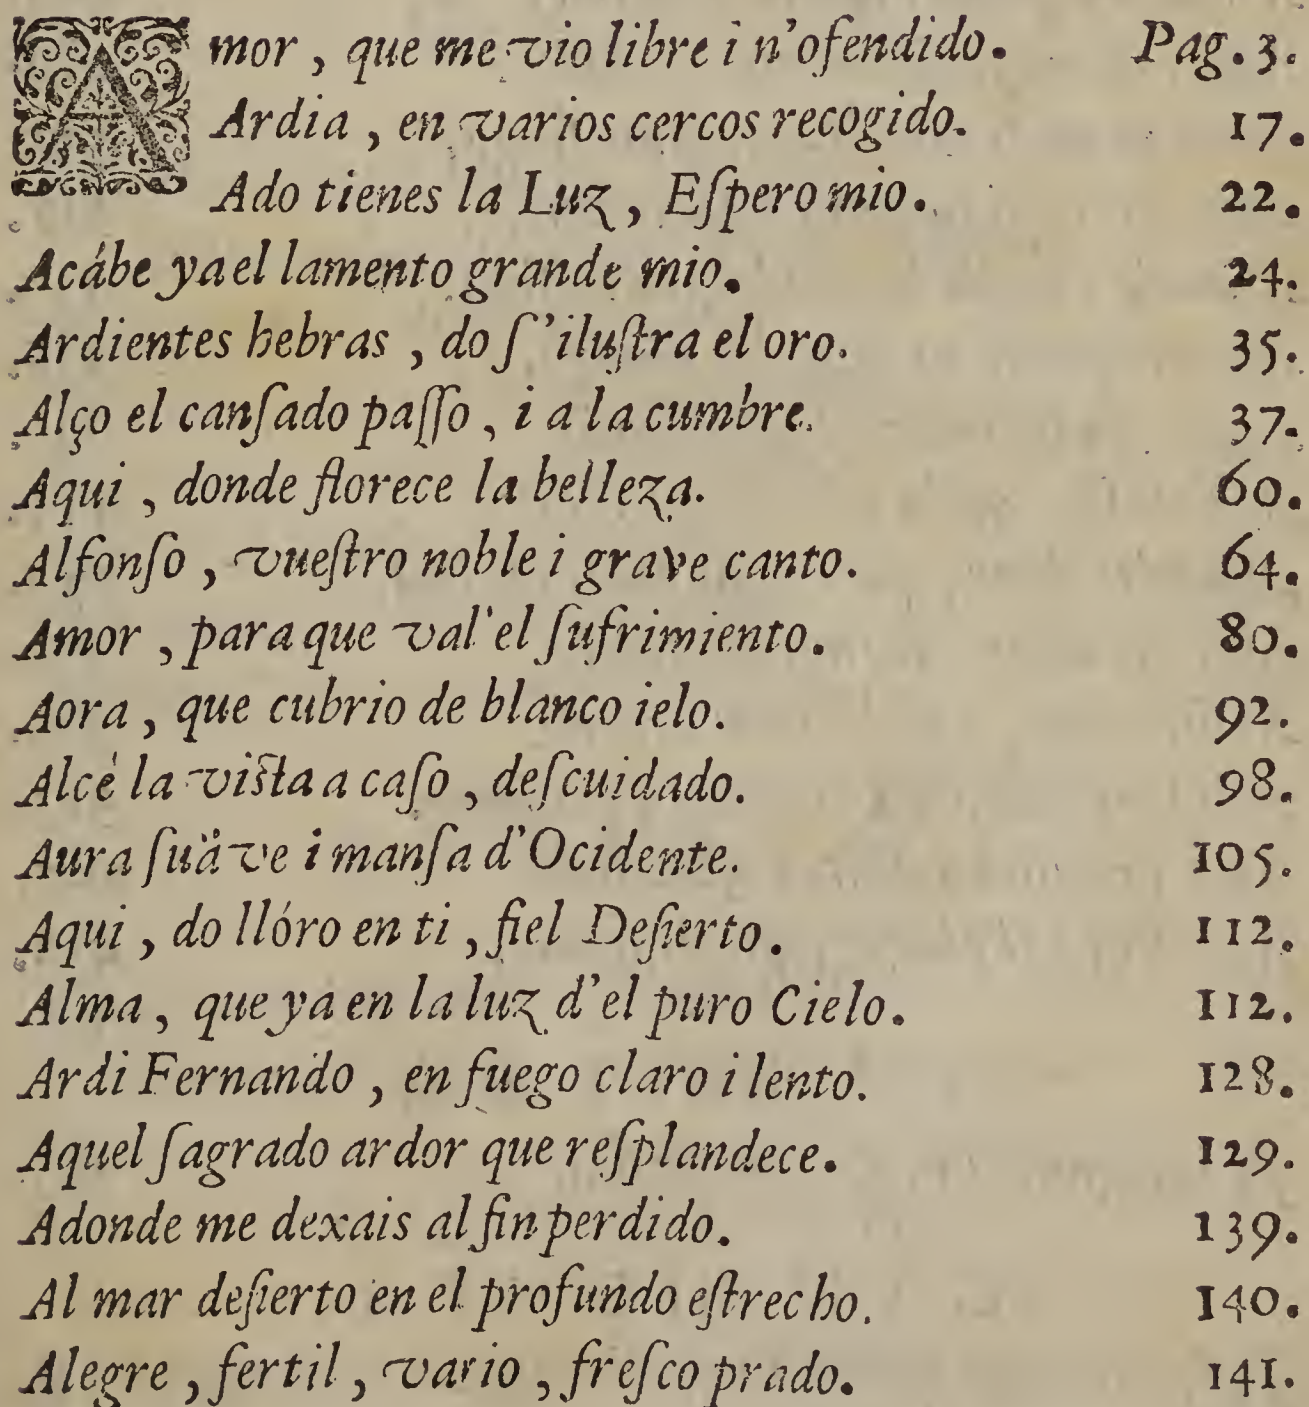 Amor, que me vio libre i n'ofendido. Pag. 3.
Ardia, en varios cercos recogido. 17.
Ado tienes la Luz, Eſpero mio. 22.
Acábe ya el lamento grande mio. 24.
Ardientes hebras, do ſ'iluſtra el oro. 35.
Alço el canſado paſſo, i a la cumbre. 37.
Aqui, donde florece la belleza. 60.
Alfonſo, vueſtro noble i grave canto. 64.
Amor, para que val'el ſufrimiento. 80.
Aora, que cubrio de blanco ielo. 92.
Alcé la viſta a caſo, deſcuidado. 98.
Aura ſuäve i manſa d'Ocidente. 105.
Aqui, do llóro en ti, fiel Deſierto. 112.
Alma, que ya en la luz d'el puro Cielo. 112.
Ardi Fernando, en fuego claro i lento. 128.
Aquel ſagrado ardor que reſplandece. 129.
Adonde me dexais al fin perdido. 139.
Al mar deſierto en el profundo eſtrecho. 140.
Alegre, fertil, vario, freſco prado. 141.